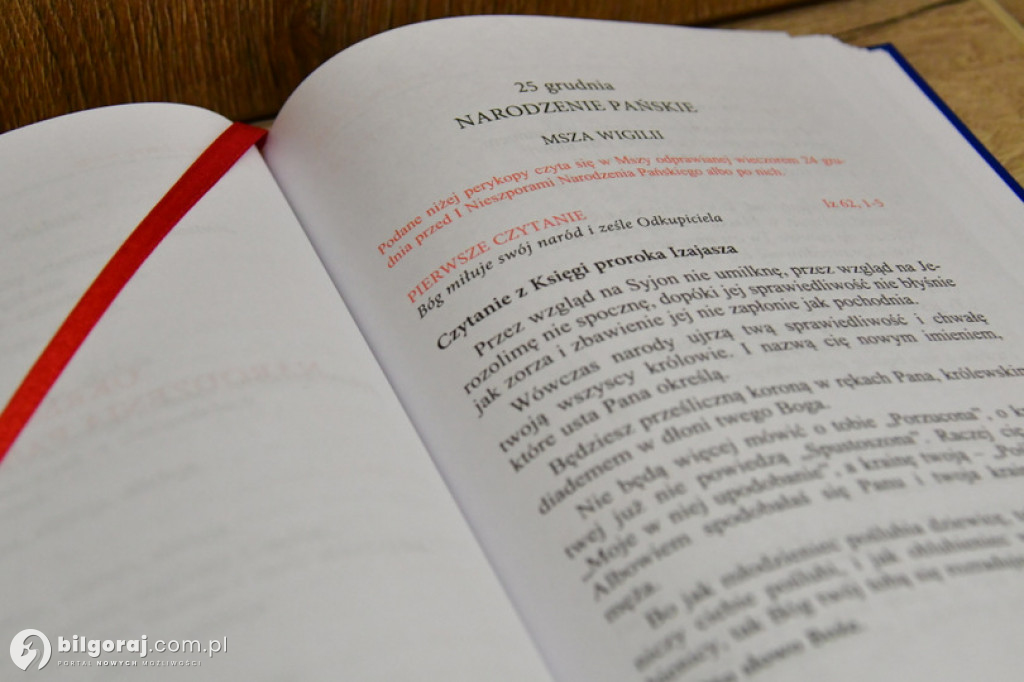 25 grudnia
NARODZENIE PAŃSKIE
MSZA WIGILII
Podane niżej perykopy czyta się w Mszy odprawianej wieczorem 24 gru-
dnia przed I Nieszporami Narodzenia Pańskiego albo po nich.
PIERWSZE CZYTANIE Iz 62, 1-5
Bóg miłuje swój naród i ześle Odkupiciela
Czytanie z Księgi proroka Izajasza
Przez wzgląd na Syjon nie umilknę, przez wzgląd na Je-
rozolimę nie spocznę, dopóki jej sprawiedliwość nie błyśnie
jak zorza i zbawienie jej nie zapłonie jak pochodnia.
Wówczas narody ujrzą twą sprawiedliwość i chwałę
twoją wszyscy królowie. I nazwą cię nowym imieniem,
które usta Pana określą.
Będziesz prześliczną koroną w rękach Pana, królewskim
diademem w dłoni twego Boga.
Nie będą więcej mówić o tobie „Porzucona", o
twej już nie powiedzą „Spustoszona". Raczej cię
„Moje w niej upodobanie", a krainę twoją –
Albowiem spodobałaś się Panu i twoja
męża.
Bo jak młodzieniec poślubia dziewicę,
ciebie poślubi, i jak oblubieniec
tak Bóg twój tobą się
słowo Boże.
bilgoraj.com.pl
PORTAL NOWYCH MOŻLIWOŚCI